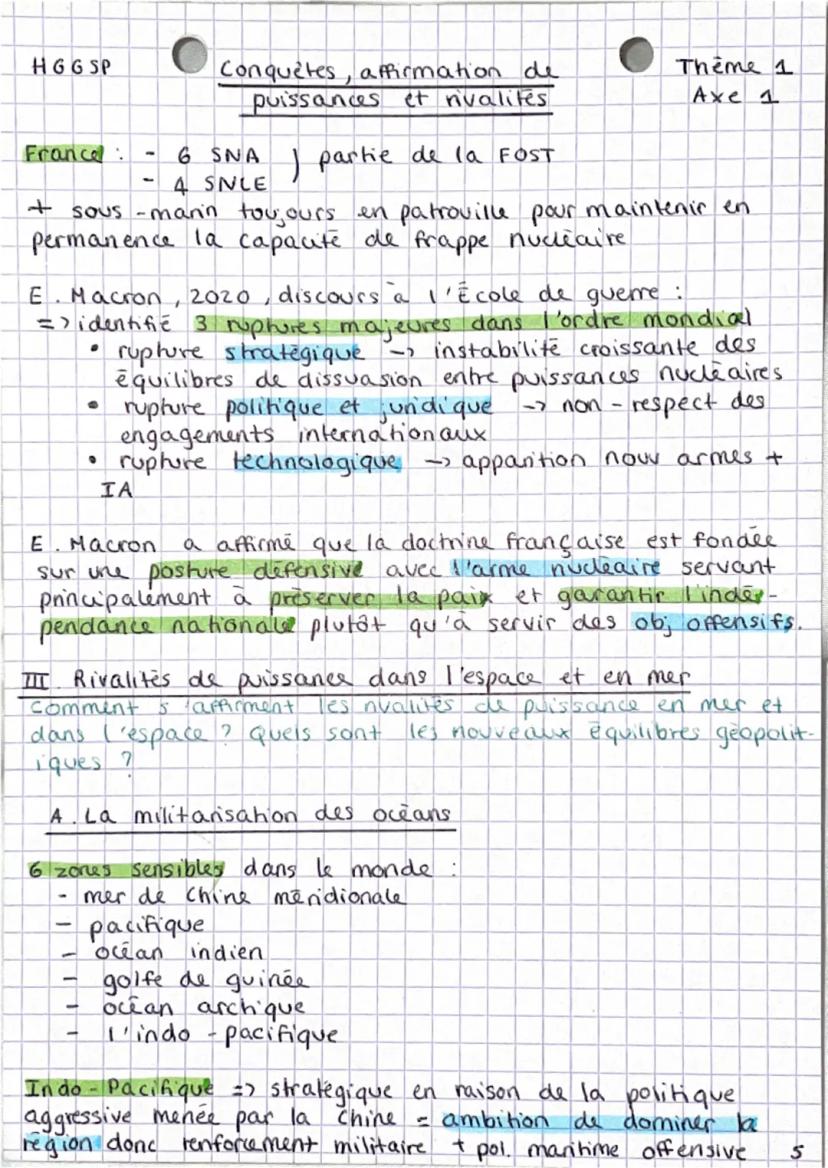 HGGSP
Conquêtes, affirmation de
puissances et rivalités
Thème 1
Axe 1
France : - 6 SNA ) partie de la FOST
- 4 SNLE
+ sous-marin toujours en patrouille pour maintenir en
permanence la capacité de frappe nucléaire
E. Macron, 2020, discours à l'École de guerre :
=> identifié 3 ruptures majeures dans l'ordre mondial
• rupture stratégique -> instabilité croissante des
équilibres de dissuasion entre puissances nucléaires
• rupture politique et juridique -> non-respect des
engagements internationaux
• rupture technologique -> apparition nouv armes +
IA
E. Macron a affirmé que la doctrine française est fondée
sur une posture défensive avec l'arme nucléaire servant
principalement à préserver la paix et garantir l'indé-
pendance nationale plutôt qu'à servir des obj offensifs.
III. Rivalités de puissance dans l'espace et en mer
Comment s'affirment les rivalités de puissance en mer et
dans l'espace ? Quels sont les nouveaux équilibres géopolit-
iques ?
A. La militarisation des océans
6 zones sensibles dans le monde :
- mer de Chine méridionale
- pacifique
- océan indien
- golfe de guinée
- océan archique
- l'indo-pacifique
Indo-Pacifique => stratégique en raison de la politique
aggressive menée par la Chine = ambition de dominer la
région donc renforcement militaire + pol. maritime offensive
5